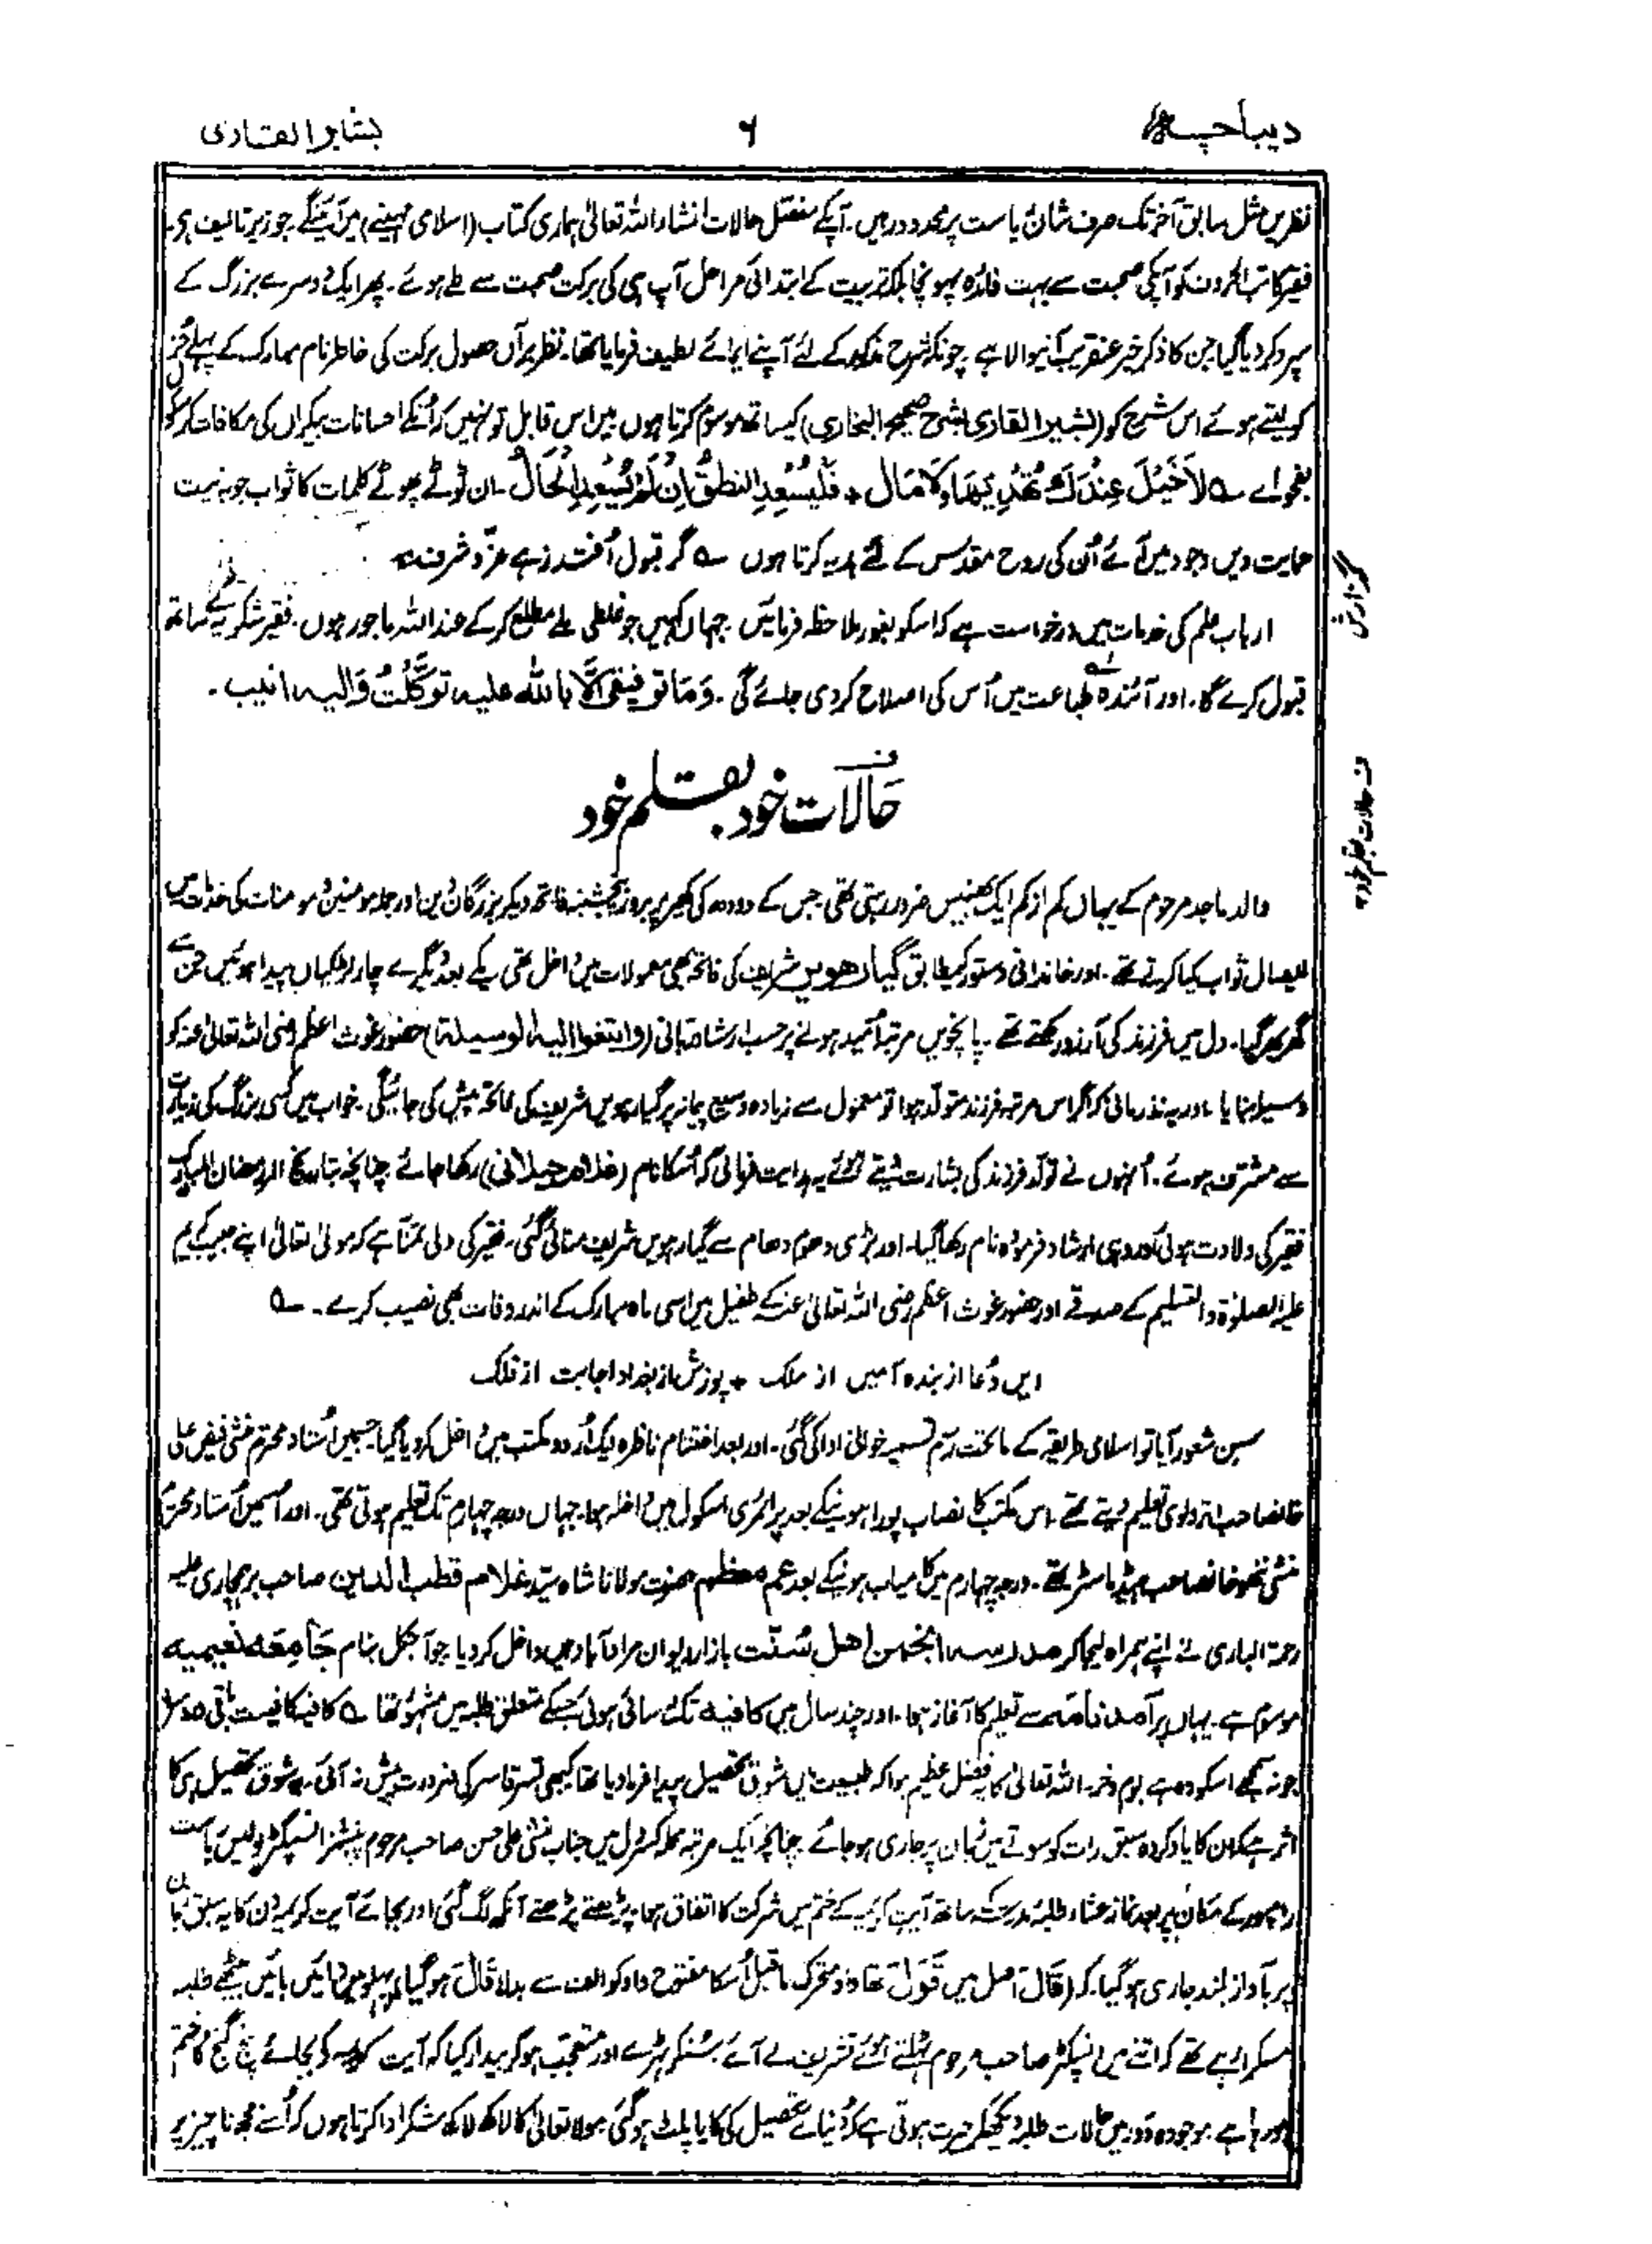 دیباچہ
۶
بشیر القاری
نظریں مثل سابق آخر تک صرف شان ریاست پر محدود رہیں۔ آپکے مفصل حالات انشاء اللہ تعالیٰ ہماری کتاب (اسلامی مہینے) میں آئینگے جو زیر تالیف ہی۔
فقیر کاتب الحروف کو آپکی صحبت سے بہت فائدہ پہونچا بلکہ تربیت کے ابتدائی مراحل آپ ہی کی برکت صحبت سے طے ہوئے۔ پھر ایک دوسرے بزرگ کے
سپرد کر دیا گیا جن کا ذکر خیر عنقریب آنیوالا ہے چونکہ شرح مذکور کے لئے آپنے ایمائے لطیف فرمایا تھا۔ نظر برآں حصول برکت کی خاطر نام مبارک کے پہلے جز
کو لیتے ہوئے اس شرح کو (بشیر القاری بشرح صحیح البخاری) کیساتھ موسوم کرتا ہوں میں اس قابل تو نہیں کہ اُنکے احسانات بیکراں کی مکافات کر سکوں
بفحوائے ؎ لَا خَيْلَ عِنْدَكَ تُهْدِيْهَا وَلَا مَال ٭ فَلْيُسْعِدِ النُّطْقُ اِنْ لَمْ يُسْعِدِ الْحَالُ۔ ان ٹوٹے پھوٹے کلمات کا ثواب جو بہ نیت
حمایت دیں وجود میں آئے اُن کی روح مقدس کے لئے ہدیہ کرتا ہوں ؎ گر قبول اُفتد زہے عزّ و شرف ٭
گزارش
ارباب علم کی خدمات میں درخواست ہے کہ اسکو بغور ملاحظہ فرمائیں جہاں کہیں جو غلطی ملے مطلع کر کے عند اللہ ماجور ہوں۔ فقیر شکریے کے ساتھ
قبول کرے گا۔ اور آئندہ طباعت میں اُس کی اصلاح کر دی جائے گی۔ وَمَا توفيقی اِلَّا بالله عليه توكَّلْتُ وَاليه انيب۔
حالات خود بقلم خود
ف حالات بقلم خود
والد ماجد مرحوم کے یہاں کم از کم ایک بھینس ضرور رہتی تھی جس کے دودھ کی کھیر پر بروز پنجشنبہ فاتحہ دیکر بزرگان دین اور جملہ مومنین و مومنات کی خدمات میں
ایصال ثواب کیا کرتے تھے۔ اور خاندانی دستور کیمطابق گیارھویں شریف کی فاتحہ بھی معمولات میں داخل تھی یکے بعد دیگرے چار لڑکیاں پیدا ہوئیں جن سے
گھر بھر گیا۔ دل میں فرزند کی آرزو رکھتے تھے۔ پانچویں مرتبہ اُمید ہونے پر حسب ارشاد ربانی (وابتغوا اليه الوسيلة) حضور غوث اعظم رضی اللہ تعالیٰ عنہ کو
وسیلہ بنایا اور یہ نذر مانی کہ اگر اس مرتبہ فرزند متولد ہوا تو معمول سے زیادہ وسیع پیمانہ پر گیارہویں شریف کی فاتحہ پیش کی جائیگی۔ خواب میں کسی بزرگ کی زیارت
سے مشرف ہوئے۔ اُنہوں نے تولّد فرزند کی بشارت دیتے ہوئے یہ ہدایت فرمائی کہ اُسکا نام (غلام جیلانی) رکھا جائے چنانچہ بتاریخ ۱۱ رمضان المبارک
فقیر کی ولادت ہوئی اور وہی ارشاد فرمودہ نام رکھا گیا۔ اور بڑی دھوم دھام سے گیارہویں شریف منائی گئی۔ فقیر کی دلی تمنا ہے کہ مولیٰ تعالیٰ اپنے حبیب کریم
علیہ الصلوٰۃ والتسلیم کے صدقے اور حضور غوث اعظم رضی اللہ تعالیٰ عنہ کے طفیل میں اسی ماہ مبارک کے اندر وفات بھی نصیب کرے۔ ؎
ایں دُعا از بندہ آمیں از ملک ٭ پوزش از بغداد اجابت از فلک
سن شعور آیا تو اسلامی طریقہ کے ماتحت رسم تسمیہ خوانی ادا کی گئی۔ اور بعد اختتام ناظرہ ایک اُردو مکتب میں داخل کر دیا گیا جسمیں اُستاد محترم منشی فیض علی
خانصاحب اترولوی تعلیم دیتے تھے۔ اس مکتب کا نصاب پورا ہونیکے بعد پرائمری اسکول میں داخلہ ہوا۔ جہاں درجہ چہارم تک تعلیم ہوتی تھی۔ اور اُسمیں اُستاد محترم
منشی نتھو خانصاحب ہیڈ ماسٹر تھے۔ درجہ چہارم میں کامیاب ہونیکے بعد عم معظم حضرت مولانا شاہ سیّد غلام قطب الدین صاحب برہمچاری علیہ
رحمۃ الباری نے اپنے ہمراہ لیجا کر مدرسہ انجمن اھل سُنّت بازار دیوان مرادآباد میں داخل کر دیا جو آجکل بنام جَامِعَہ نعیمیہ
موسوم ہے۔ یہاں پر آمد نامہ سے تعلیم کا آغاز ہوا۔ اور چند سال میں کافیہ تک رسائی ہوئی جسکے متعلق طلبہ میں مشہور تھا ؎ کافیہ کافیست باقی درد سر
جو نہ سمجھے اسکو وہ ہے بوم و خر۔ اللہ تعالیٰ کا یہ فضل عظیم ہوا کہ طبیعت میں شوق تحصیل پیدا فرما دیا تھا کبھی قسر قاسر کی ضرورت پیش نہ آئی۔ یہ شوق تحصیل ہی کا
اثر ہے کہ دن کا یاد کردہ سبق رات کو سوتے میں زبان پر جاری ہو جائے چنانچہ ایک مرتبہ محلہ کسرول میں جناب منشی علی حسن صاحب مرحوم پنشنر انسپکٹر پولیس ریاست
رامپور کے مکان پر بعد نماز عشاء طلبۂ مدرسہ کے ساتھ آیت کریمہ کے ختم میں شرکت کا اتفاق ہوا۔ پڑھتے پڑھتے آنکھ لگ گئی اور بجائے آیت کریمہ دن کا یہ سبق زبان
پر بآواز بلند جاری ہو گیا۔ کہ (قَالَ اصل میں قَوَلَ تھا واؤ متحرک ماقبل اُسکا مفتوح واؤ کو الف سے بدلا قَالَ ہو گیا) پہلو میں دائیں بائیں بیٹھے طلبہ
مسکرا رہے تھے کہ اتنے میں انسپکٹر صاحب مرحوم ٹہلتے ہوئے تشریف لے آئے سُنکر ہنس پڑے اور متعجب ہو کر بیدار کیا کہ آیت کریمہ کے بجائے پنج گنج کا ختم
ہو رہا ہے۔ موجودہ دَور میں حالات طلبہ دیکھکر حیرت ہوتی ہے کہ دُنیائے تحصیل کی کایا پلٹ ہو گئی مولا تعالیٰ کا لاکھ لاکھ شکر ادا کرتا ہوں کہ اُسنے مجھ ناچیز پر